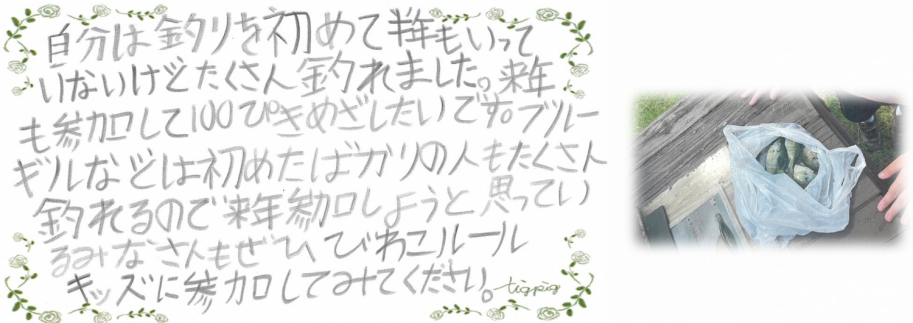 自分は釣りを初めて半年もいって
いないけどたくさん釣れました。来年
も参加して100ぴきめざしたいです。ブルー
ギルなどは初めたばかりの人もたくさん
釣れるので来年参加しようと思ってい
るみなさんもぜひびわこルール
キッズに参加してみてください。
tigpig